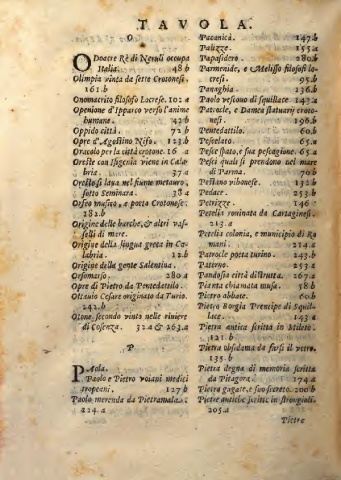 TAVOLA.
O
ODoacre Rè di Neruli occupa
Italia. 48 b
Olimpia vinta da sette Crotonesi.
161. b
Onomacrito filosofo Locrese. 102 a
Openione d'Ipparco verso l'anime
humane. 42 b
Oppido città. 72 b
Opre d'Agostino Nifo. 123. b
Oracolo per la città crotone. 16 a
Oreste con Ifigenia viene in Cala
bria. 37. a
Oreste si laua nel fiume metauro,
sotto Seminara. 38. a
Orfeo musico, e poeta Crotonese.
182. b
Origine delle barche, & altri vas-
selli di mare.
Origine della lingua greca in Ca-
labria. 12. b
Origine della gente Salentina.
Orsomarso. 280. a
Opre di Pietro da Pentedattilo.
Ottauio Cesare originato da Turio.
242. b
Otone secondo vinto nelle riuiere
di Cosenza. 32. a & 263. a
P
PAola.
Paolo e Pietro voiani medici
tropeani. 127. b
Paolo merenda da Pietramala.
224. a
Pacanica. 147. b
Palizze. 155. a
Papasidero. 280. b
Parmenide, e Melisso filosofi lo-
cresi. 95. b
Panaghia 236. b
Paolo vescouo di squillace 142. a
Patrocle, e Damea statuarij croto-
nesi. 196. b
Pentedattilo. 60. b
Pesseleto. 65. a
Pesce spato, e sua pescagione. 65. a
Pesci quali si prendono nel mare
di Parma. 70. b
Pestano vibonese. 132. b
Pedace. 253. b
Petrizze 146. a
Petelia rouinata da Cartaginesi.
213. a
Petelia colonia, e municipio di Ro
mani. 214. a
Patrocle poeta turino. 243. b
Paterno. 252. a
Pandosia città distrutta. 267. a
Pianta chiamata musa. 58. b
Pietro abbate. 60. b
Pietro Borgia Prencipe di Squil-
lace. 143. a
Pietra antica scritta in Mileto.
121. b
Pietra obsidama da farsi di vetro.
135. b
Pietra degna di memoria scritta
da Pitagora. 174. a
Pietra gagate, e suo secreto. 200 b
Pietre antiche scritte in strongioli.
205. a
Pietre